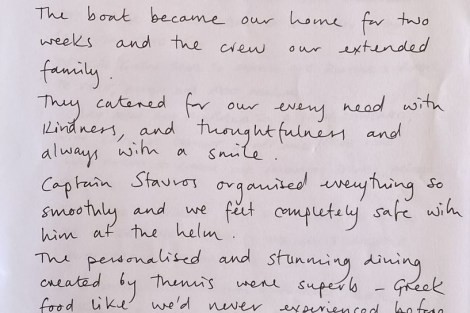 The boat became our home for two
weeks and the crew our extended
family.
They catered for our every need with
kindness, and thoughtfulness and
always with a smile.
Captain Stavros organised everything so
smoothly and we felt completely safe with
him at the helm.
The personalised and stunning dining
created by Themis were superb – Greek
food like we'd never experienced before